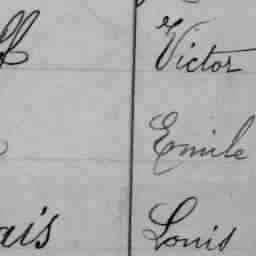 Victor
Emile
ais Louis